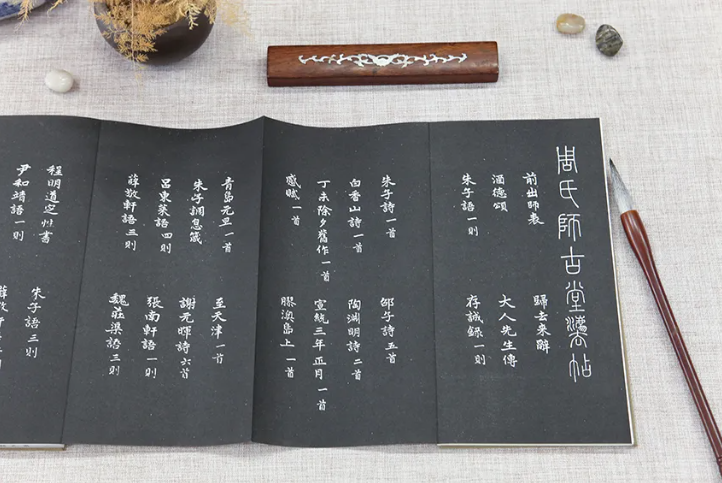 周氏師古堂灋帖
前出師表
歸去來辭
酒德頌
大人先生傳
朱子語一則
存誠錄一則
朱子詩一首
邵子詩五首
白香山詩一首
陶淵明詩二首
丁未除夕舊作一首
宣統三年正月一首
感賦一首
膠澳島上一首
青島元旦一首
至天津一首
朱子調息箴
謝元暉詩六首
呂東萊語四則
張南軒語一則
薛敬軒語三則
魏莊渠語三則
程明道定性書
朱子語三則
尹和靖語一則